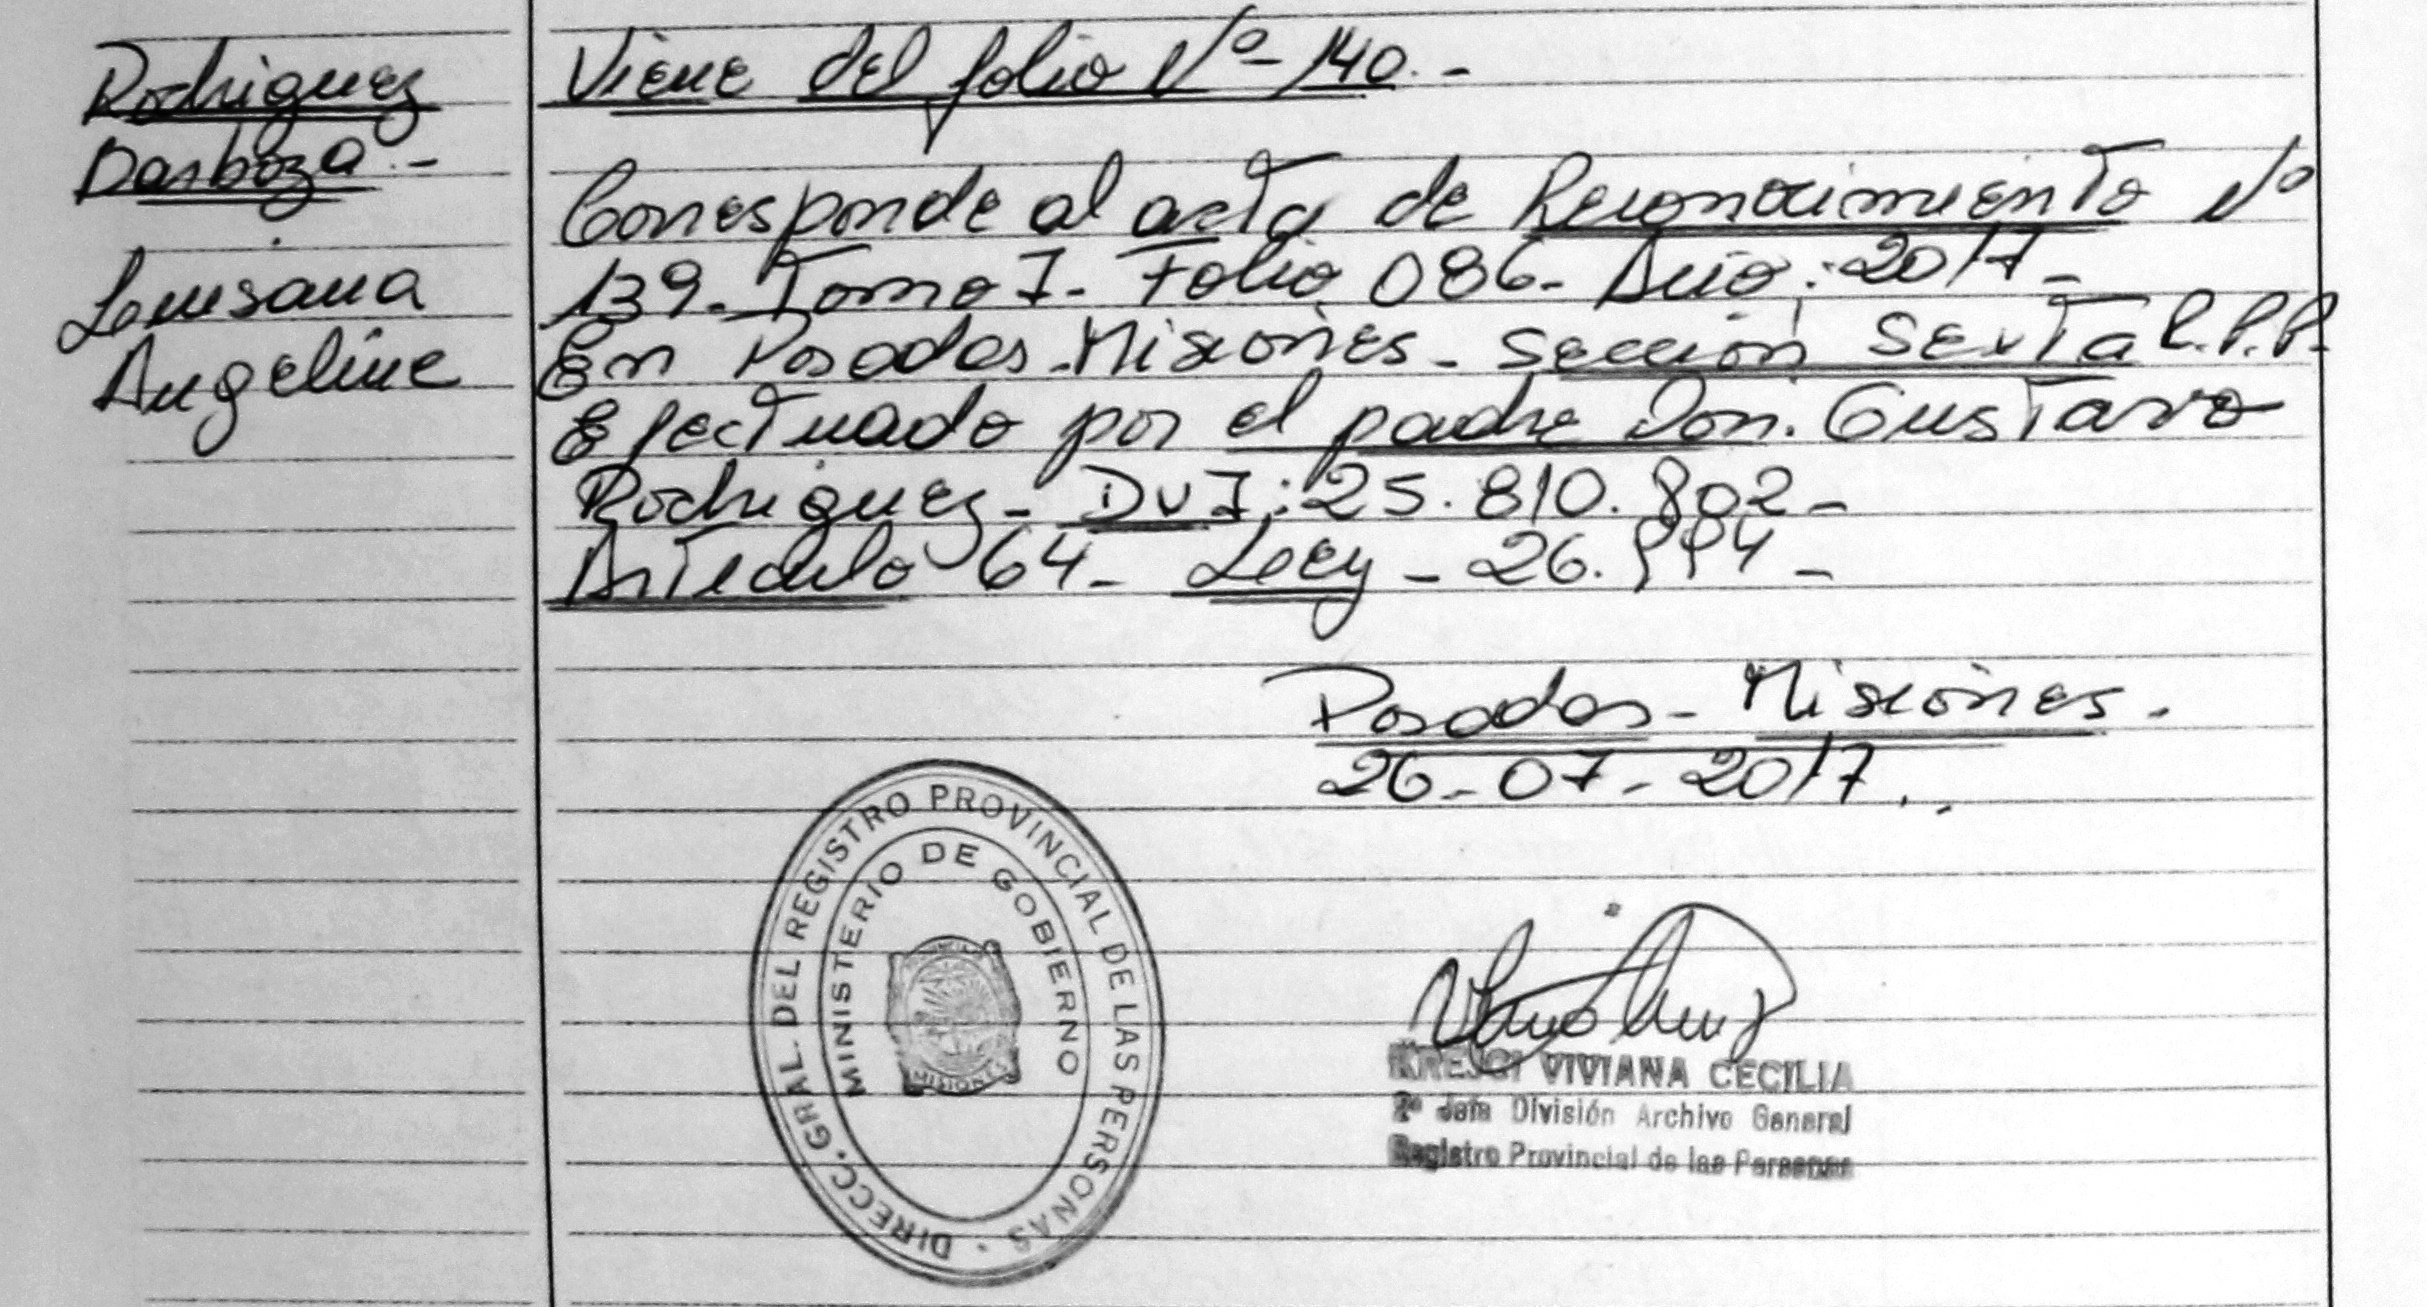 Rodriguez
Barboza.-
Louisana
Angeline
Viene del folio Nº-140.-
Corresponde al acta de Reconocimiento Nº
139- Tomo I- Folio 086- Año: 2017-
En Posadas-Misiones- Sección Sexta R.P.P.
Efectuado por el padre Don. Gustavo
Rodriguez- DNI: 25.810.802-
Articulo 64- Ley - 26.994-
Posadas- Misiones.
26-07-2017.
DIRECC. GRAL. DEL REGISTRO PROVINCIAL DE LAS PERSONAS
MINISTERIO DE GOBIERNO
MISIONES
VIVIANA CECILIA
2º Jefe División Archivo General
Registro Provincial de las Personas